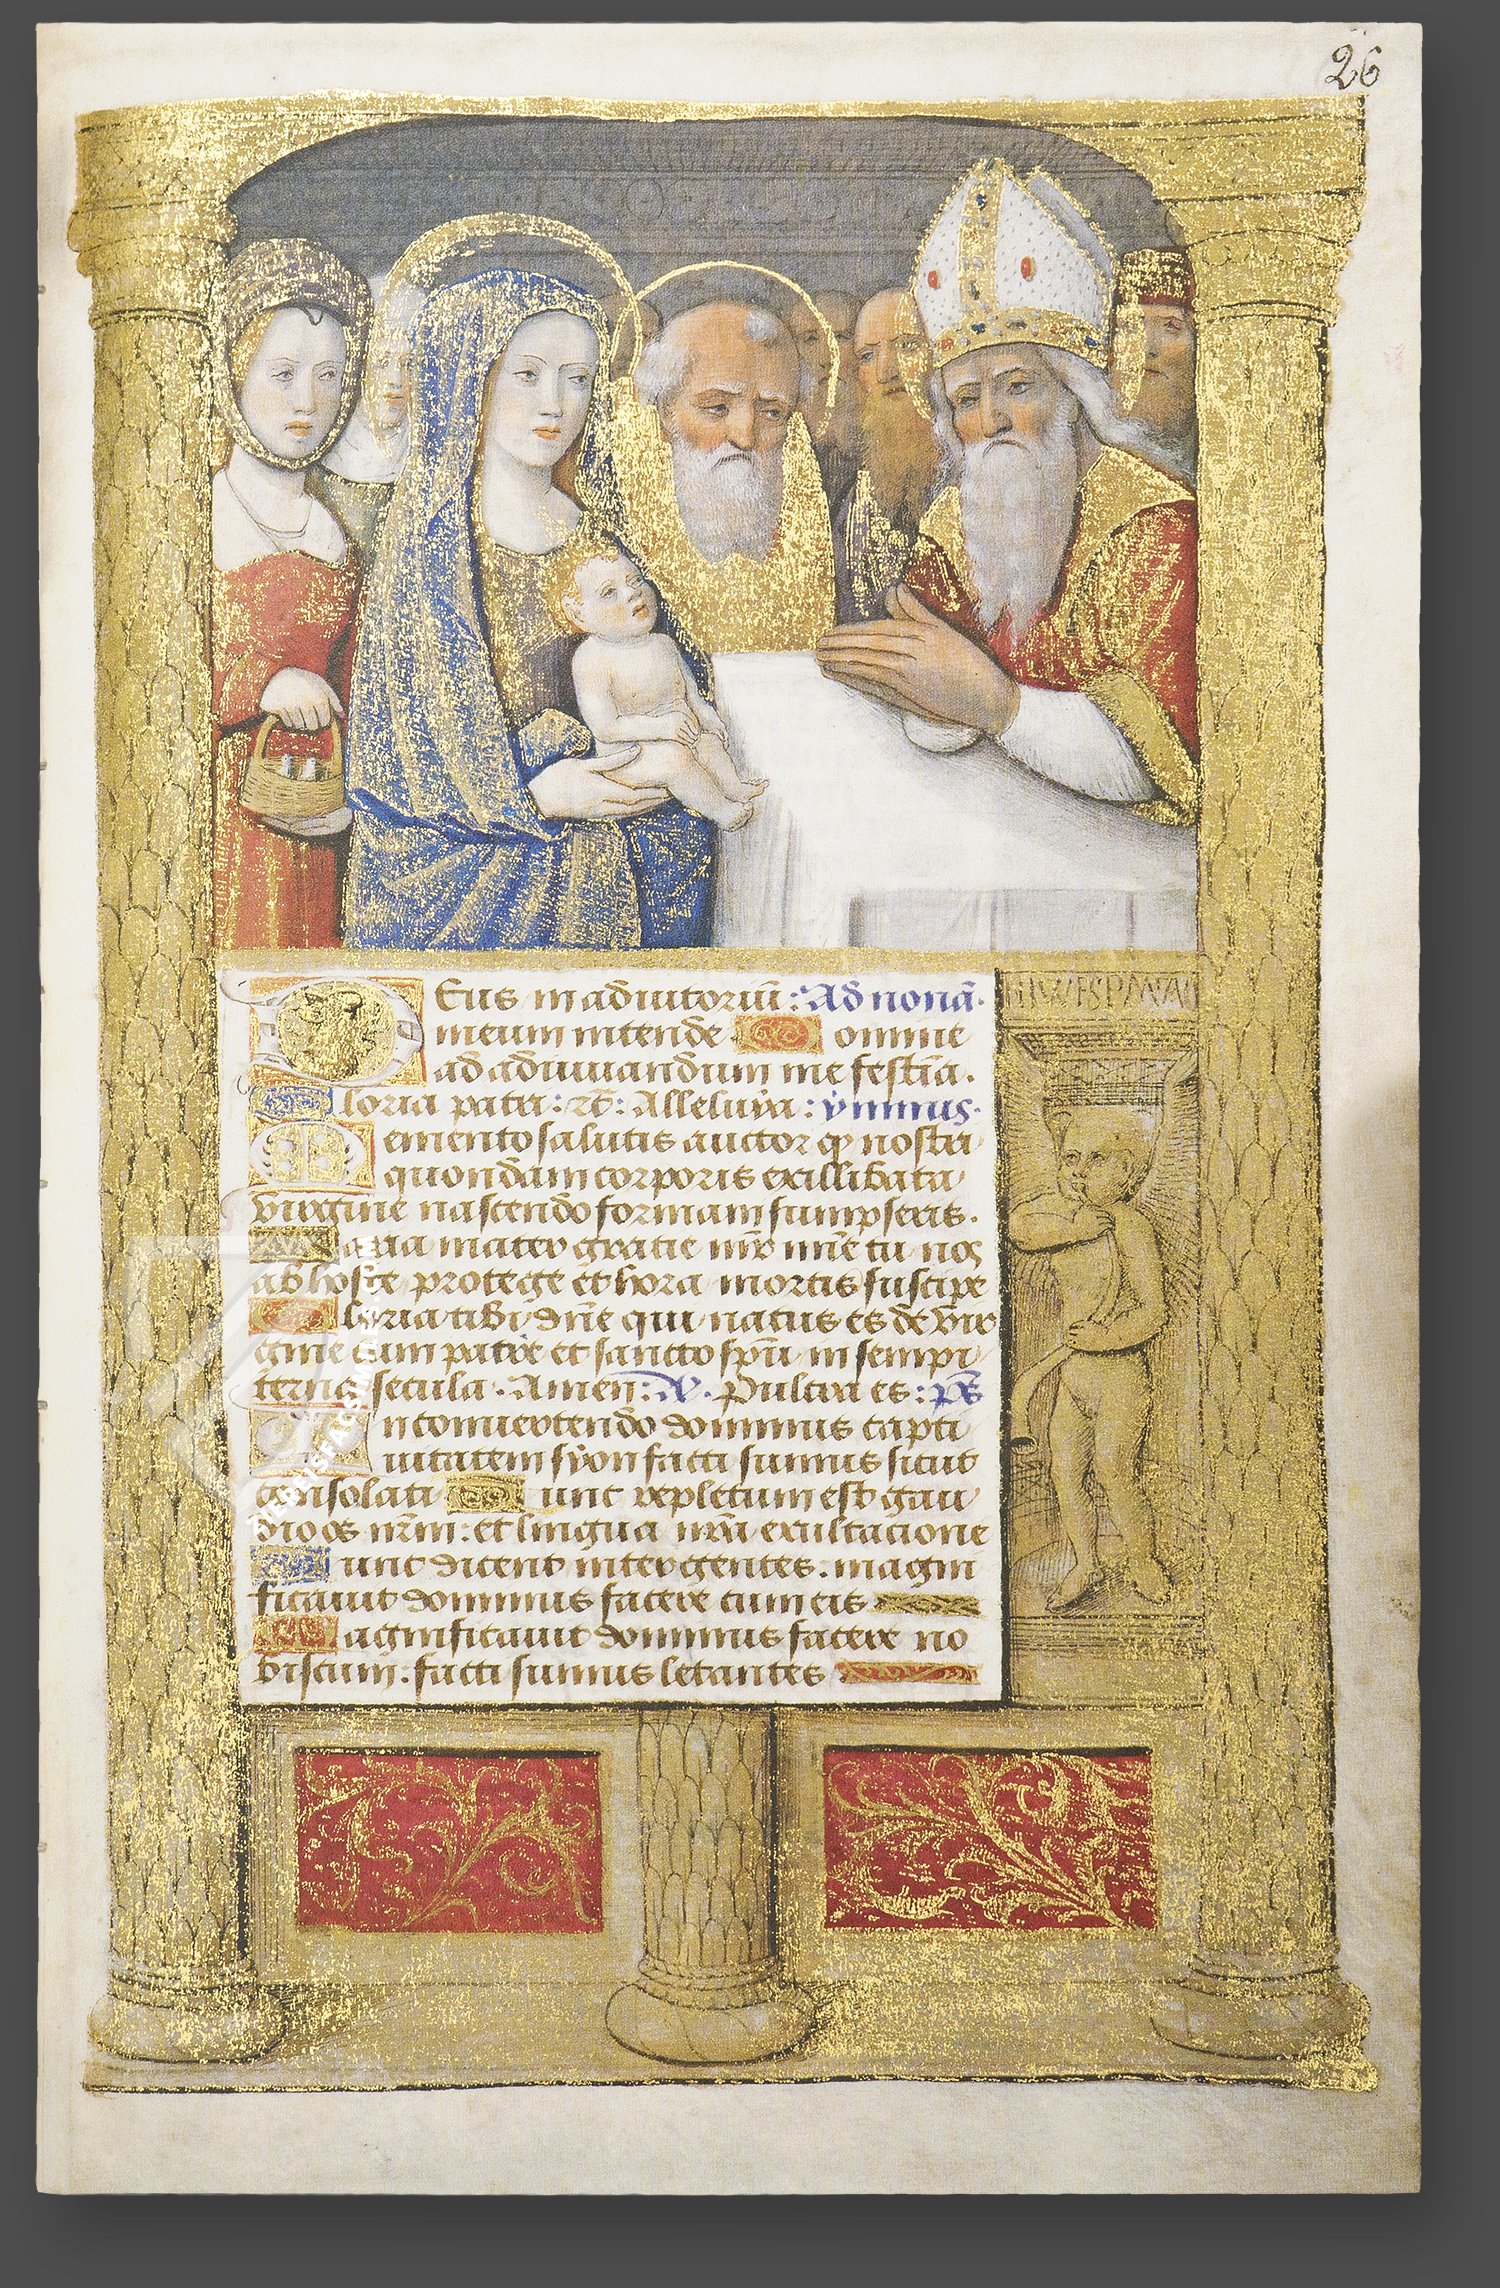 26
Deus in adiutoriū: Ad nonā.
meum intende. Domine
ad adiuuandum me festīa.
Gloria patri: Alleluya: ymnus.
Memento salutis auctor qp nostri
quondam corporis ex illibata
virgine nascendo formam sumpseris.
Maria mater gratie mr̄ mīe tu nos
ab hoste protege et hora mortis suscipe
Gloria tibi dn̄e qui natus es de vir
gine cum patre et sancto spū in sempi
terna secula. Amen: Pulcra es: ps
In conuertendo dominus capti
uitatem syon facti sumus sicut
consolati Tunc repletum est gau
dio os nr̄m: et lingua nr̄a exultacione
Tunc dicent inter gentes: magni
ficauit dominus facere cum eis
Magnificauit dominus facere no
biscum: facti sumus letantes